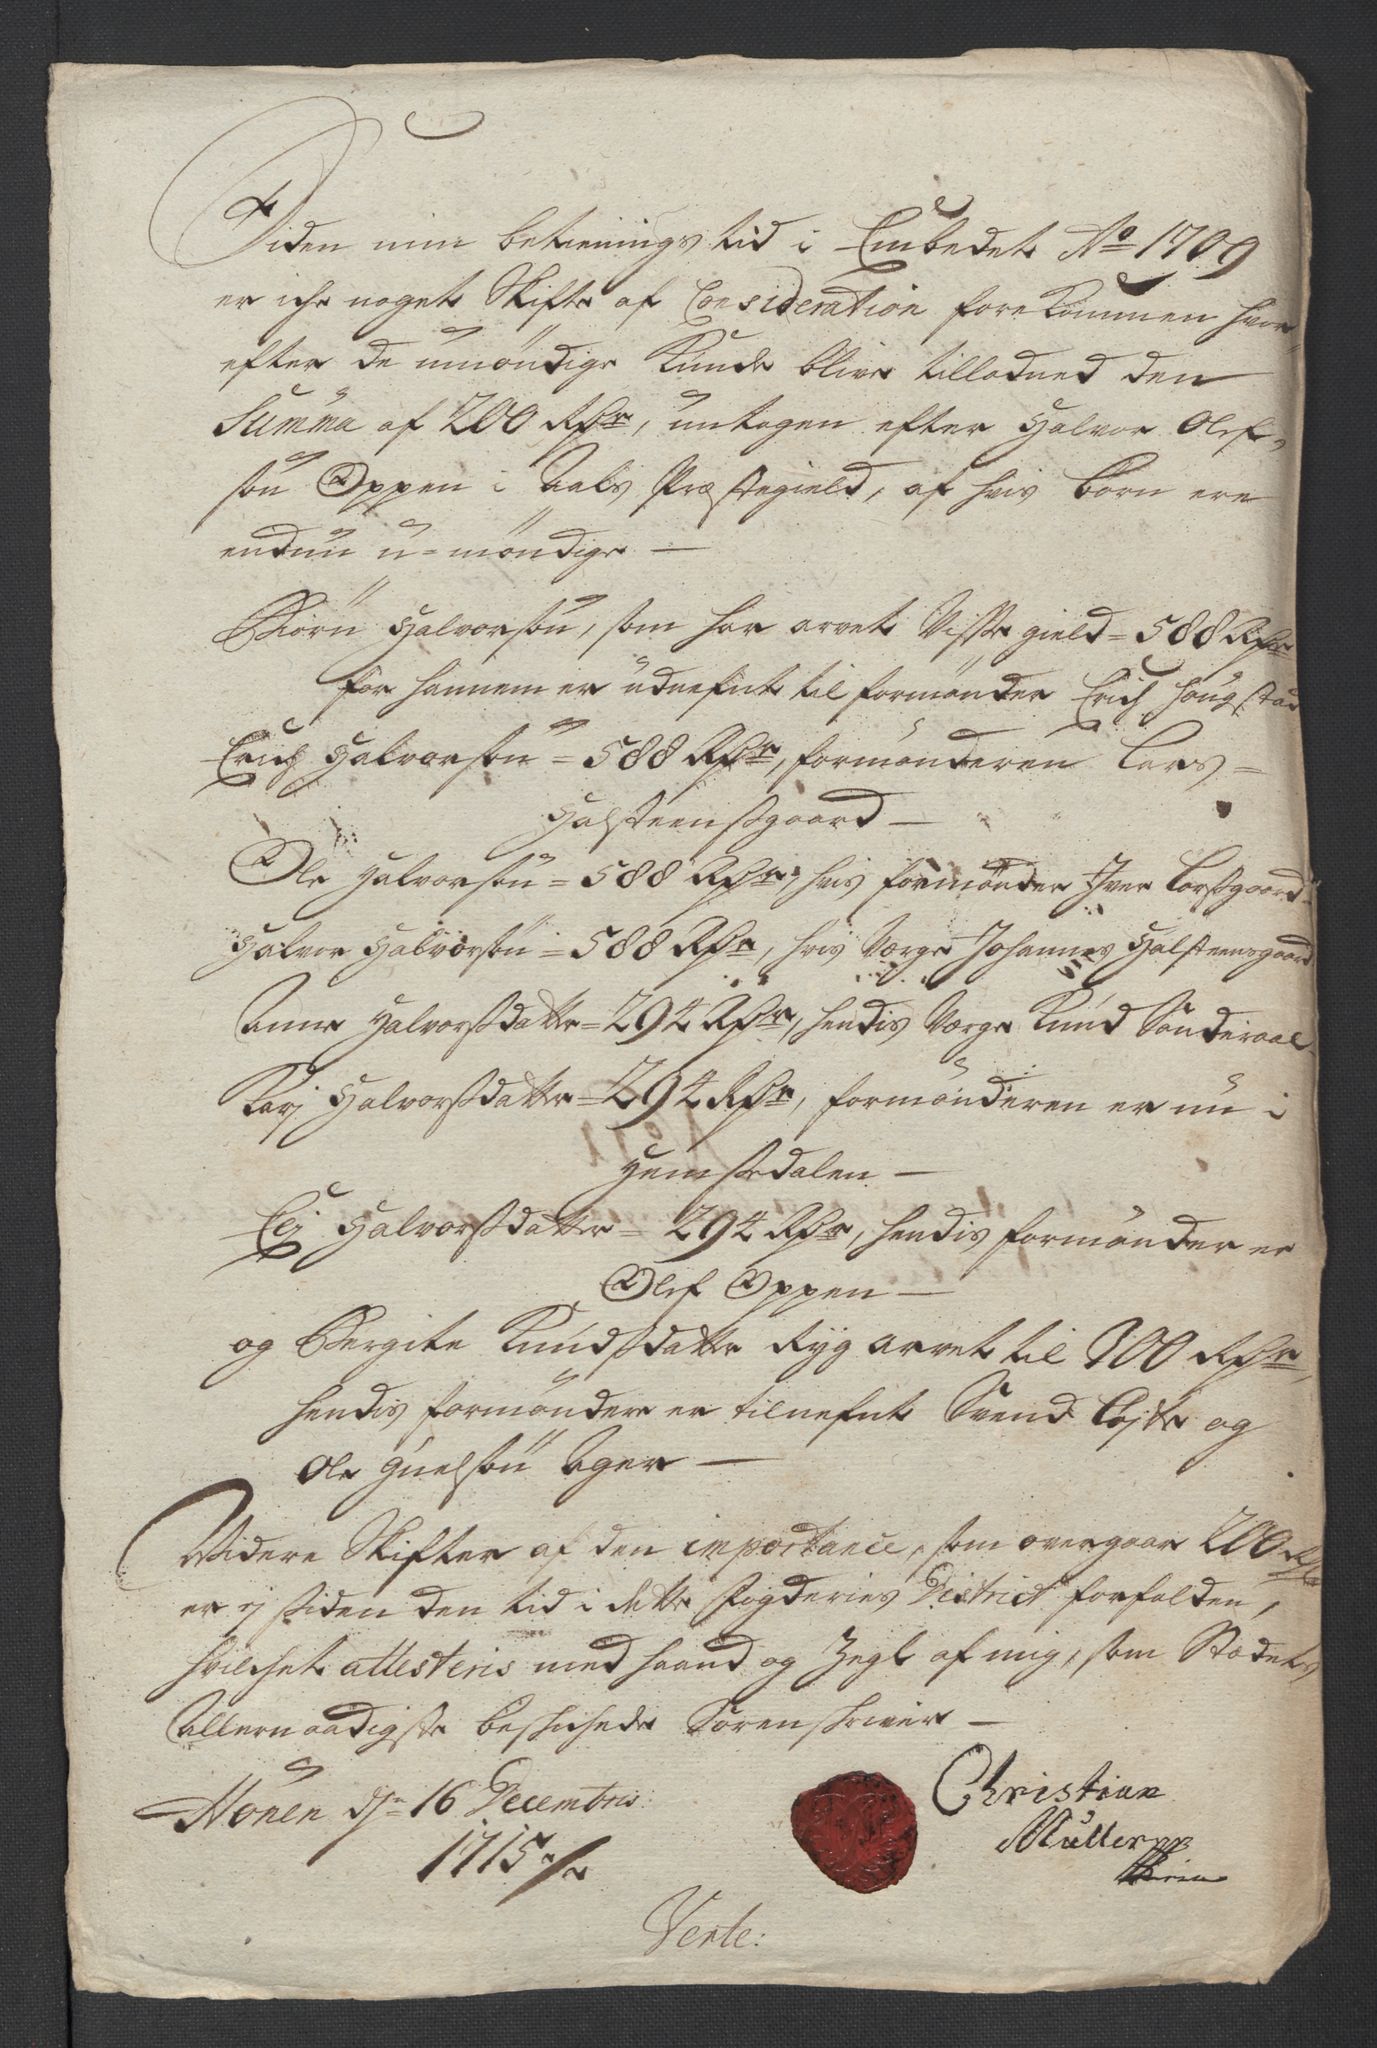 Siden min betienings tid i Embedet Ao 1709
er iche noget Skifte af Consideration forekommen hvor
efter de umöndige kunde blive tillodned den
Summa af 200 Rdr, untagen efter Halvor Olef-
sön Oppen i Aals Præstegield, af hvis Börn ere
endnu u-möndige —
Biörn Halvorsön, som har arvet Visse gield = 588 Rdr
for hannem er udnefnt til formönder Erich Hougstad
Erich Halvorsön = 588 Rdr, formönderen Lars
Halsteensgaard —
Ole Halvorsön = 588 Rdr, hvis formönder Iver Larsgaard
Halvor Halvorsön = 588 Rdr, hvis Værge Johannes Halsteensgaard
Anne Halvorsdatter = 294 Rdr, hendis Værge Knud Sönderaal
Karj Halvorsdatter = 294 Rdr, formönderen er nu i
Hemsedalen —
Halvorsdatter = 294 Rdr, hendis formönder er
Olef Oppen —
og Bergite Knudsdatter Ryg arvet til 900 Rdr,
hendis formöndere er tilnefnt Svend og
Ole Ager —
Videre Skifter af den importance, som overgaar 200 Rdr
er ej siden den tid i dette Fogderies District forfalden,
hvilchet attesteris med haand og Zegl af mig, som Stædets
Allernaadigste beschichede Sorenskriver —
Hönen dn 16 Decembris
1715
Christian
Müller
Verte: